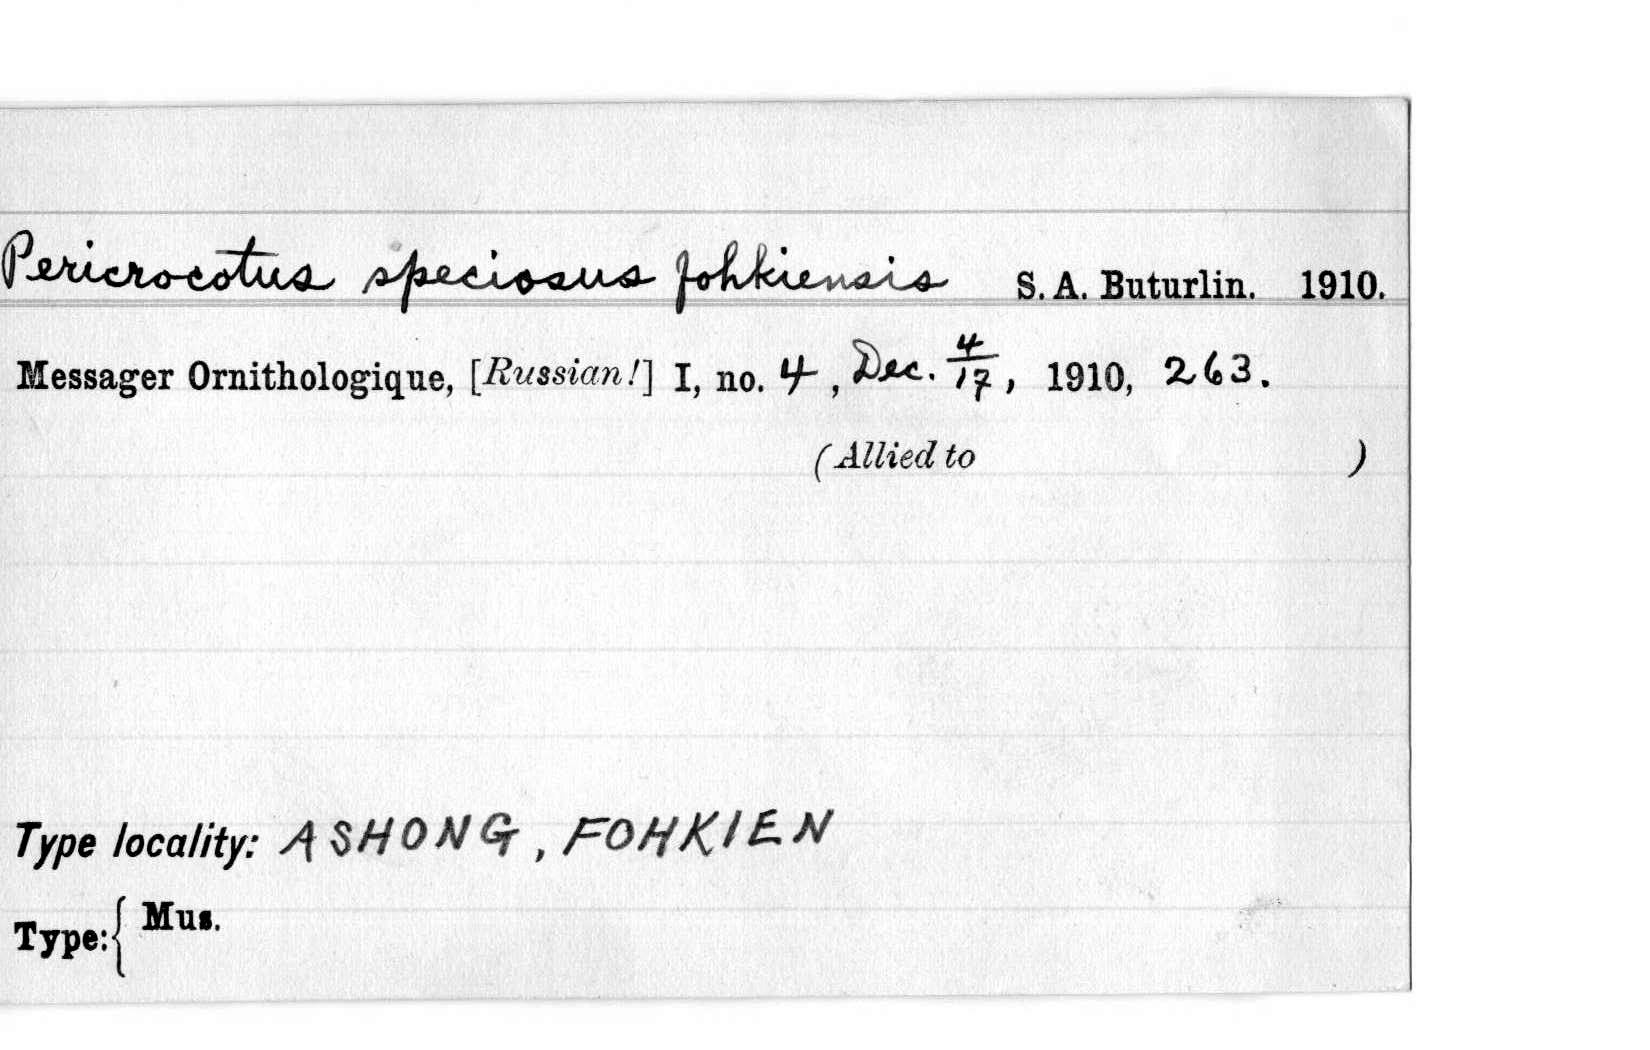 Pericrocotus speciosus fohkiensis S. A. Buturlin. 1910.
Messager Ornithologique, [Russian!] I, no. 4, Dec. 4/17, 1910, 263.
(Allied to )
Type locality: ASHONG, FOHKIEN
Type: { Mus.